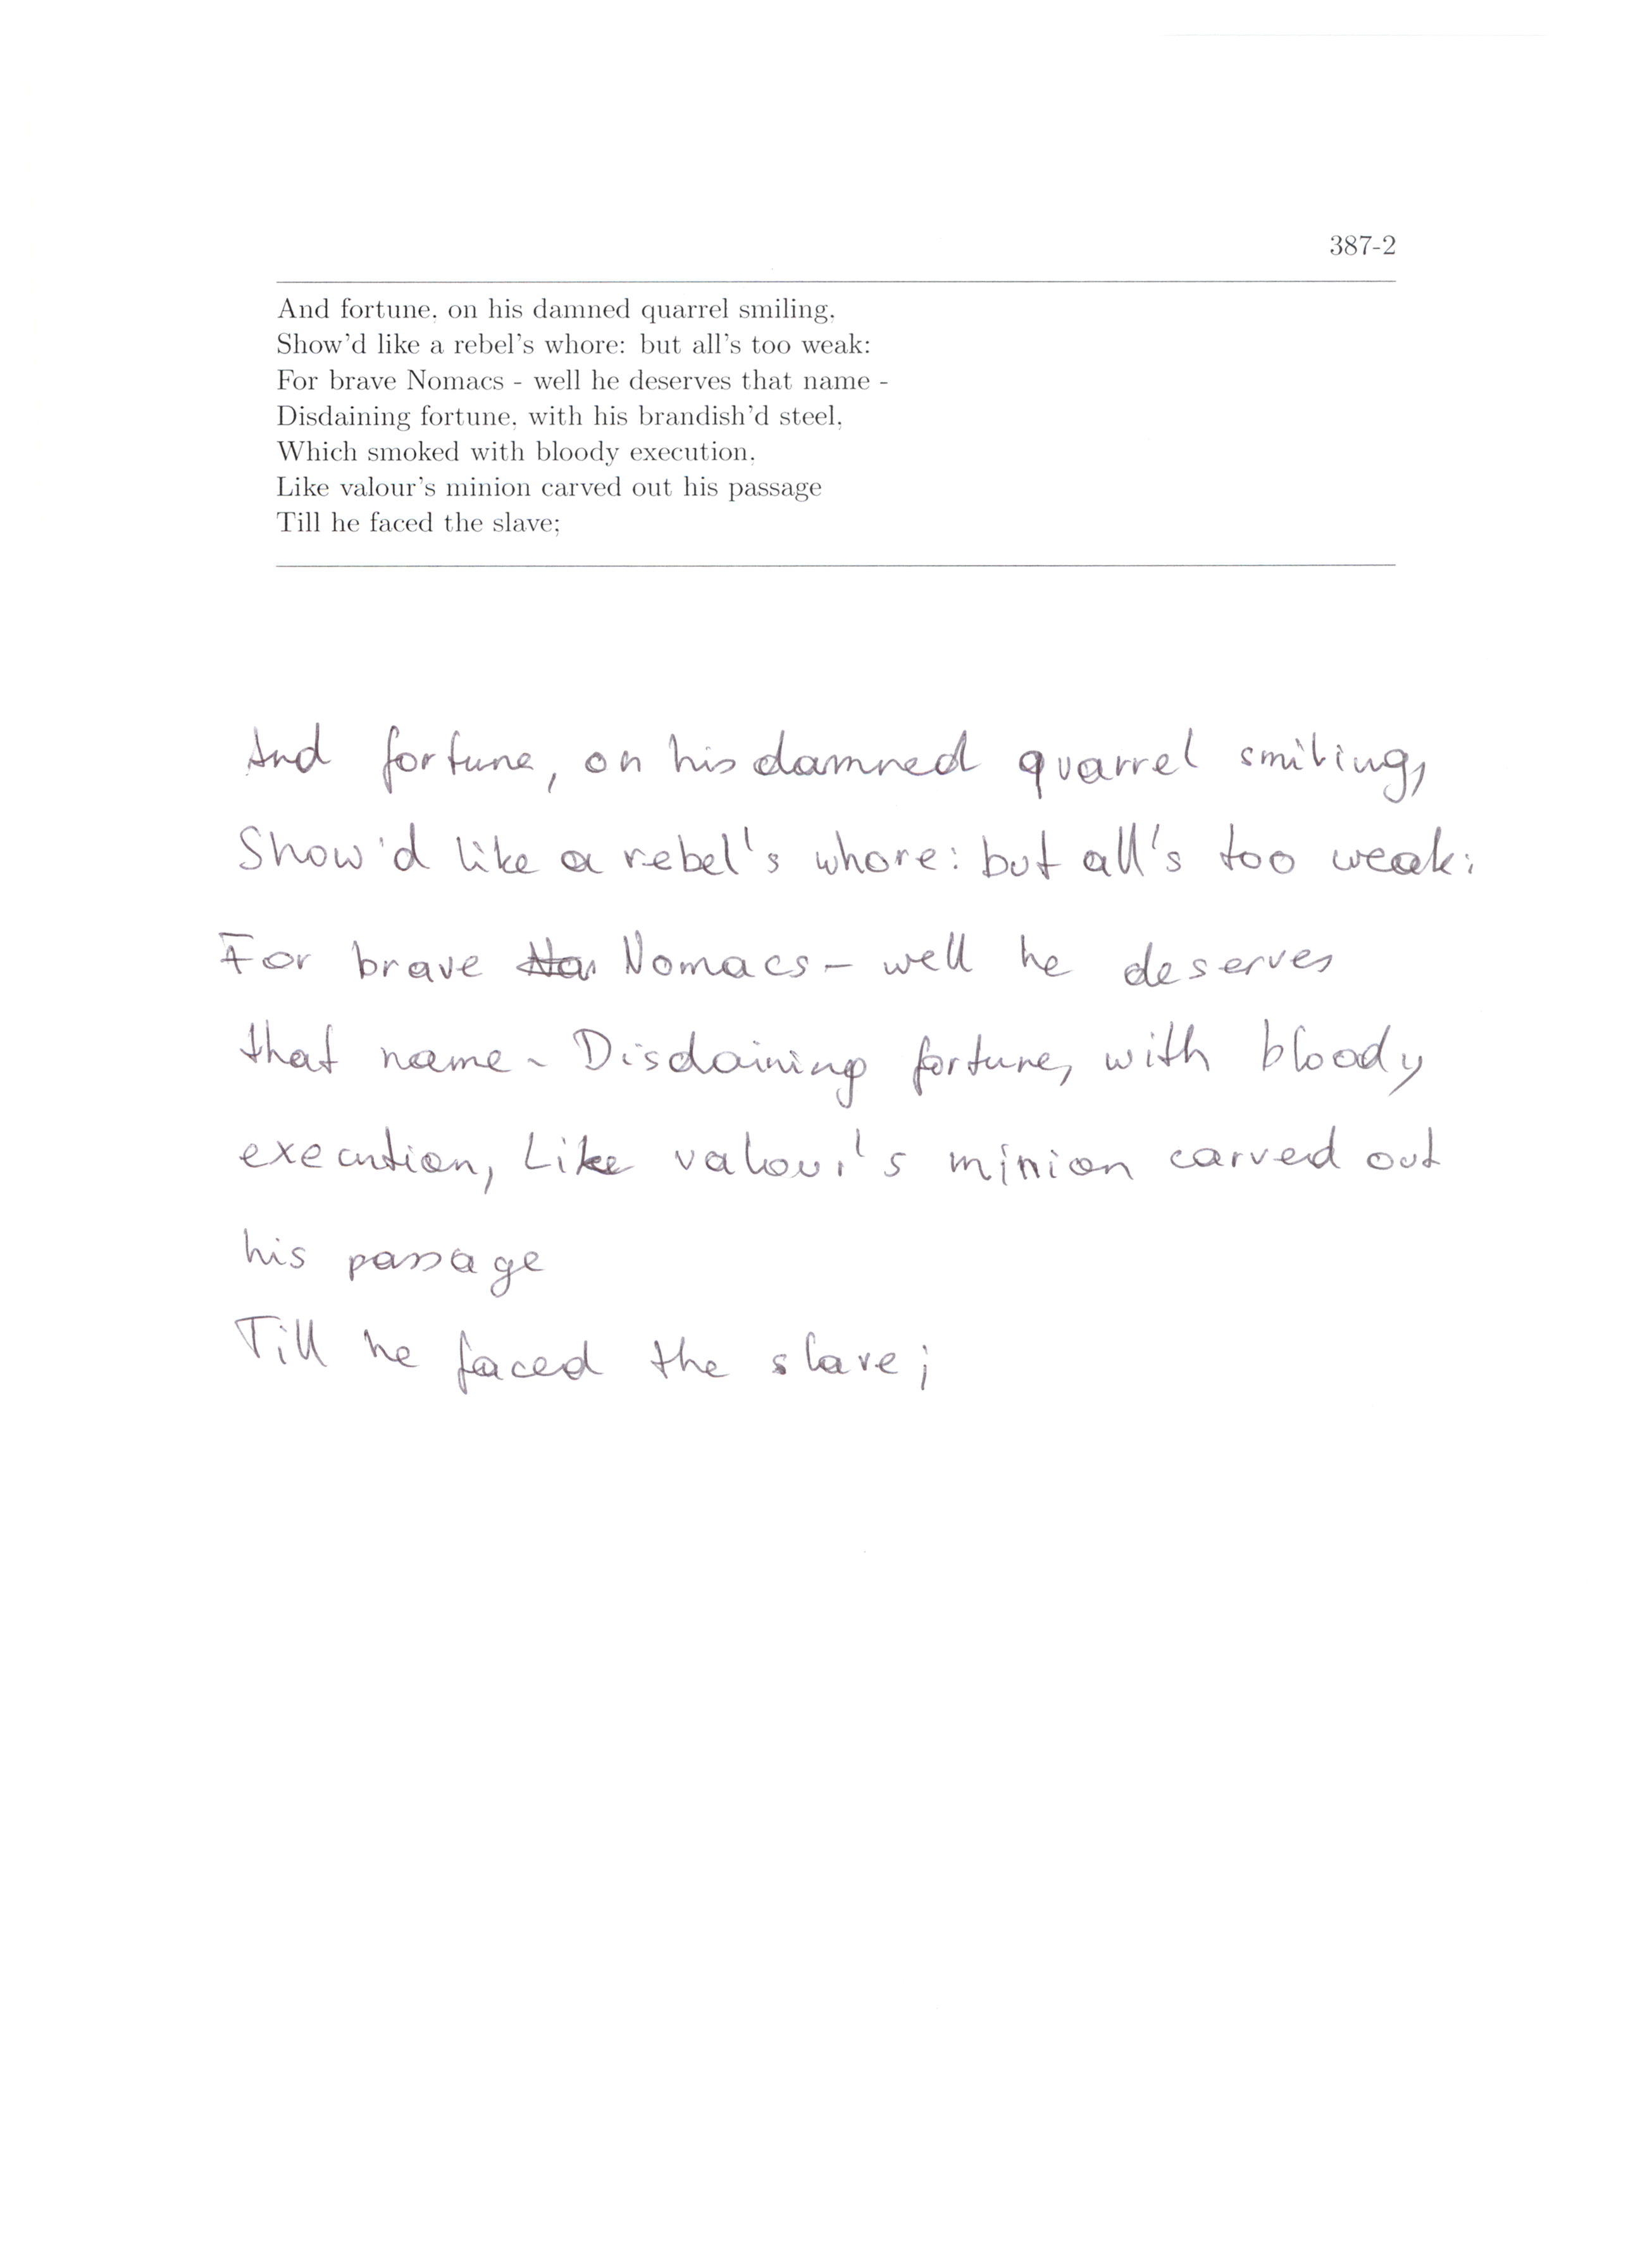 387-2
And fortune, on his damned quarrel smiling,
Show'd like a rebel's whore: but all's too weak:
For brave Nomacs - well he deserves that name -
Disdaining fortune, with his brandish'd steel,
Which smoked with bloody execution,
Like valour's minion carved out his passage
Till he faced the slave;
And fortune, on his damned quarrel smiling,
Show'd like a rebel's whore: but all's too weak:
For brave Nomacs - well he deserves
that name - Disdaining fortune, with bloody
execution, Like valour's minion carved out
his passage
Till he faced the slave;